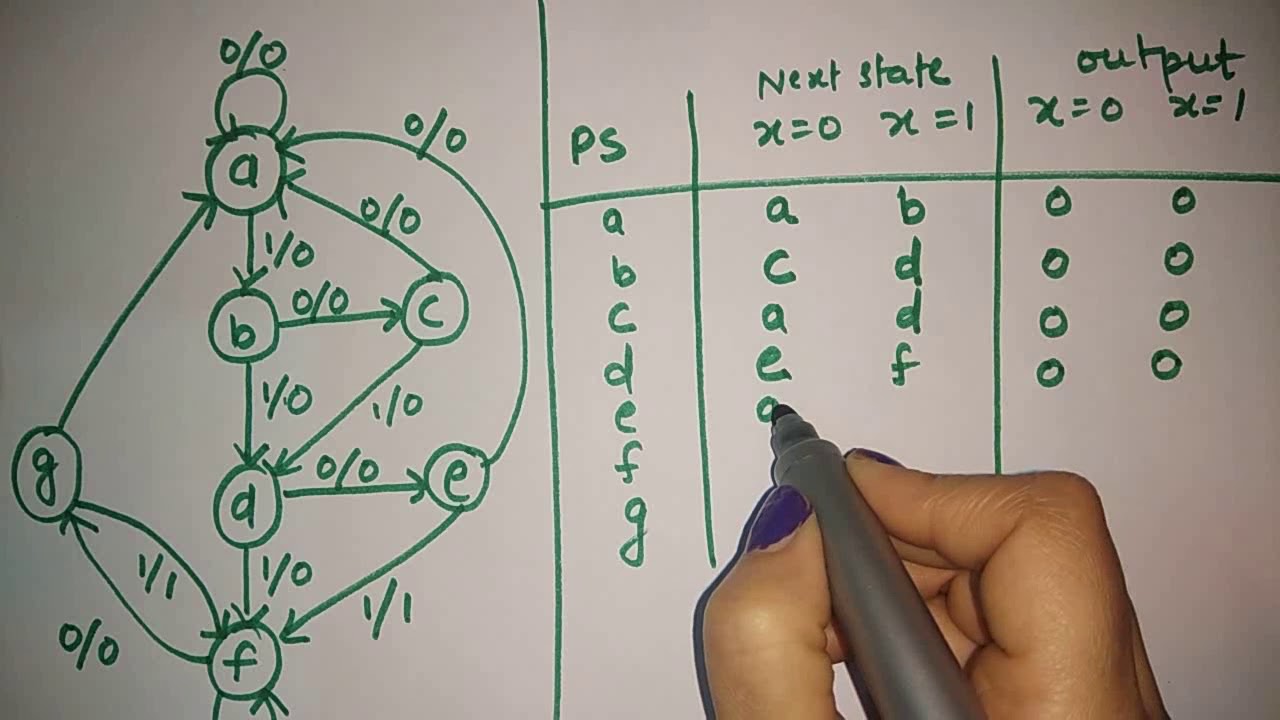 0/0
a
0/0
0/0
1/0
b
0/0
c
1/0
1/0
g
d
0/0
e
1/1
1/0
1/1
0/0
f
Next state output
PS x=0 x=1 x=0 x=1
a a b 0 0
b c d 0 0
c a d 0 0
d e f 0 0
e
f
g